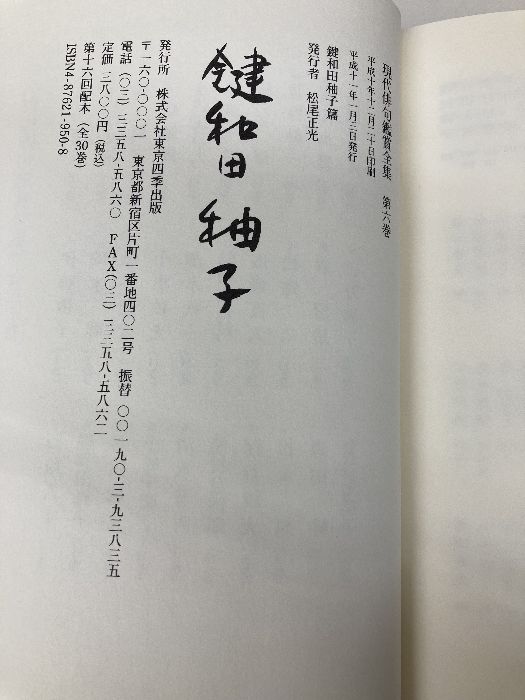 現代俳句鑑賞全集　第六巻
平成十年十二月二十日印刷
平成十一年一月三日発行
鍵和田秞子篇
発行者　松尾正光
鍵和田秞子
発行所　株式会社東京四季出版
〒一六〇-〇〇〇一　東京都新宿区片町一番地四〇二号　振替　〇〇一九〇-三-九三八三五
電話（〇三）三三五八-五八六〇　FAX（〇三）三三五八-五八六二
定価　三八〇〇円（税込）
第十六回配本（全30巻）
ISBN4-87621-950-8